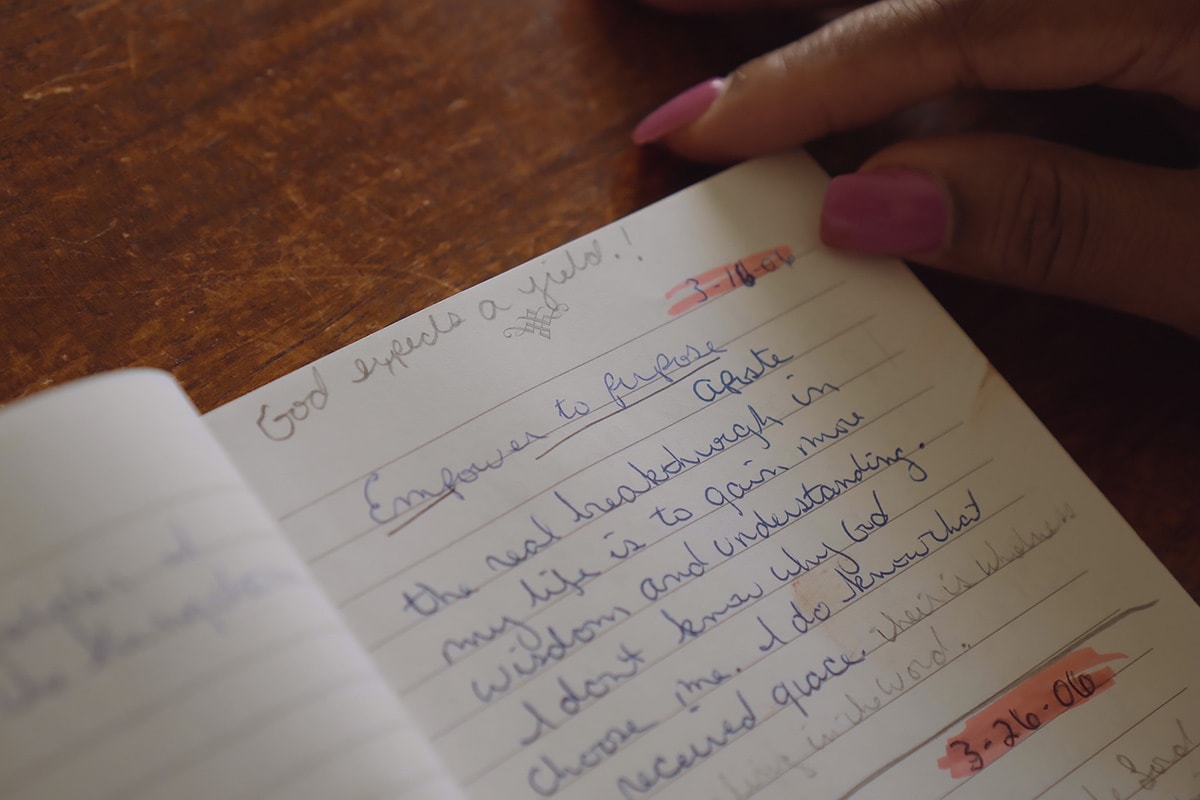 God expects a yield!!
3-16-06
Empower to purpose
Aposte
the real breakthurgh in
my life is to gain more
wisdom and understanding.
I dont know why God
choose me. I do know that
received grace. their is wholness
in the word.
3-26-06
the Lord